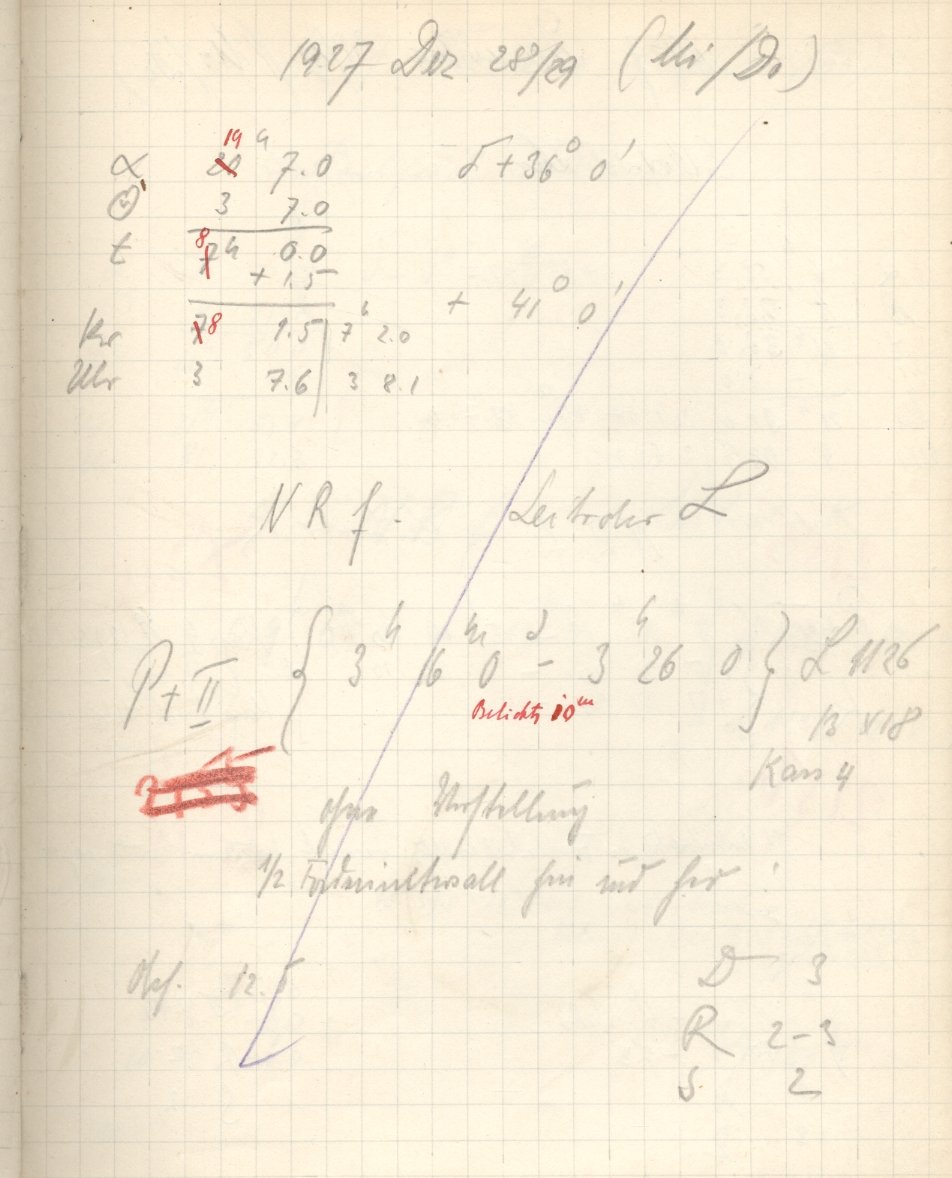 1927 Dez 28/29 (Mi/Do)
19
α 20 h 7.0 δ + 36° 0'
3 7.0
8
t 7h 0.0
+ 1.5
+ 41° 0'
7 8 1.5 7h 2.0
Uhr 3 7.6 3 8.1
N R f. Leitrohr L
P + II { 3h 16m 0s - 3h 26 0 } L 1126
Belichtg 10m
B X18
Kass 4
ohne Verstellung
1/2 Fadenintervall hin und her
12.5
D 3
R 2-3
S 2